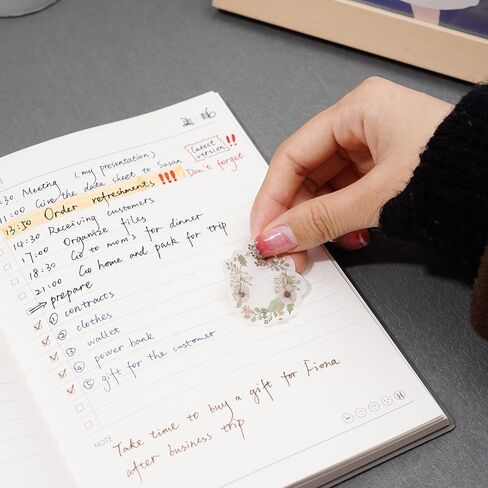 :30 Meeting (my presentation)
11:00 Give the data sheet to Susan
Latest version !!
Don't forget
13:30 Order refreshments !!!
14:30 Receiving customers
17:00 Organize files
18:30 Go to mom's for dinner
21:00 Go home and pack for trip
⇒ prepare
✓ ① contracts
✓ ② clothes
✓ ③ wallet
✓ ④ power bank
✓ ⑤ gift for the customer
NOTE
Take time to buy a gift for Fiona
after business trip